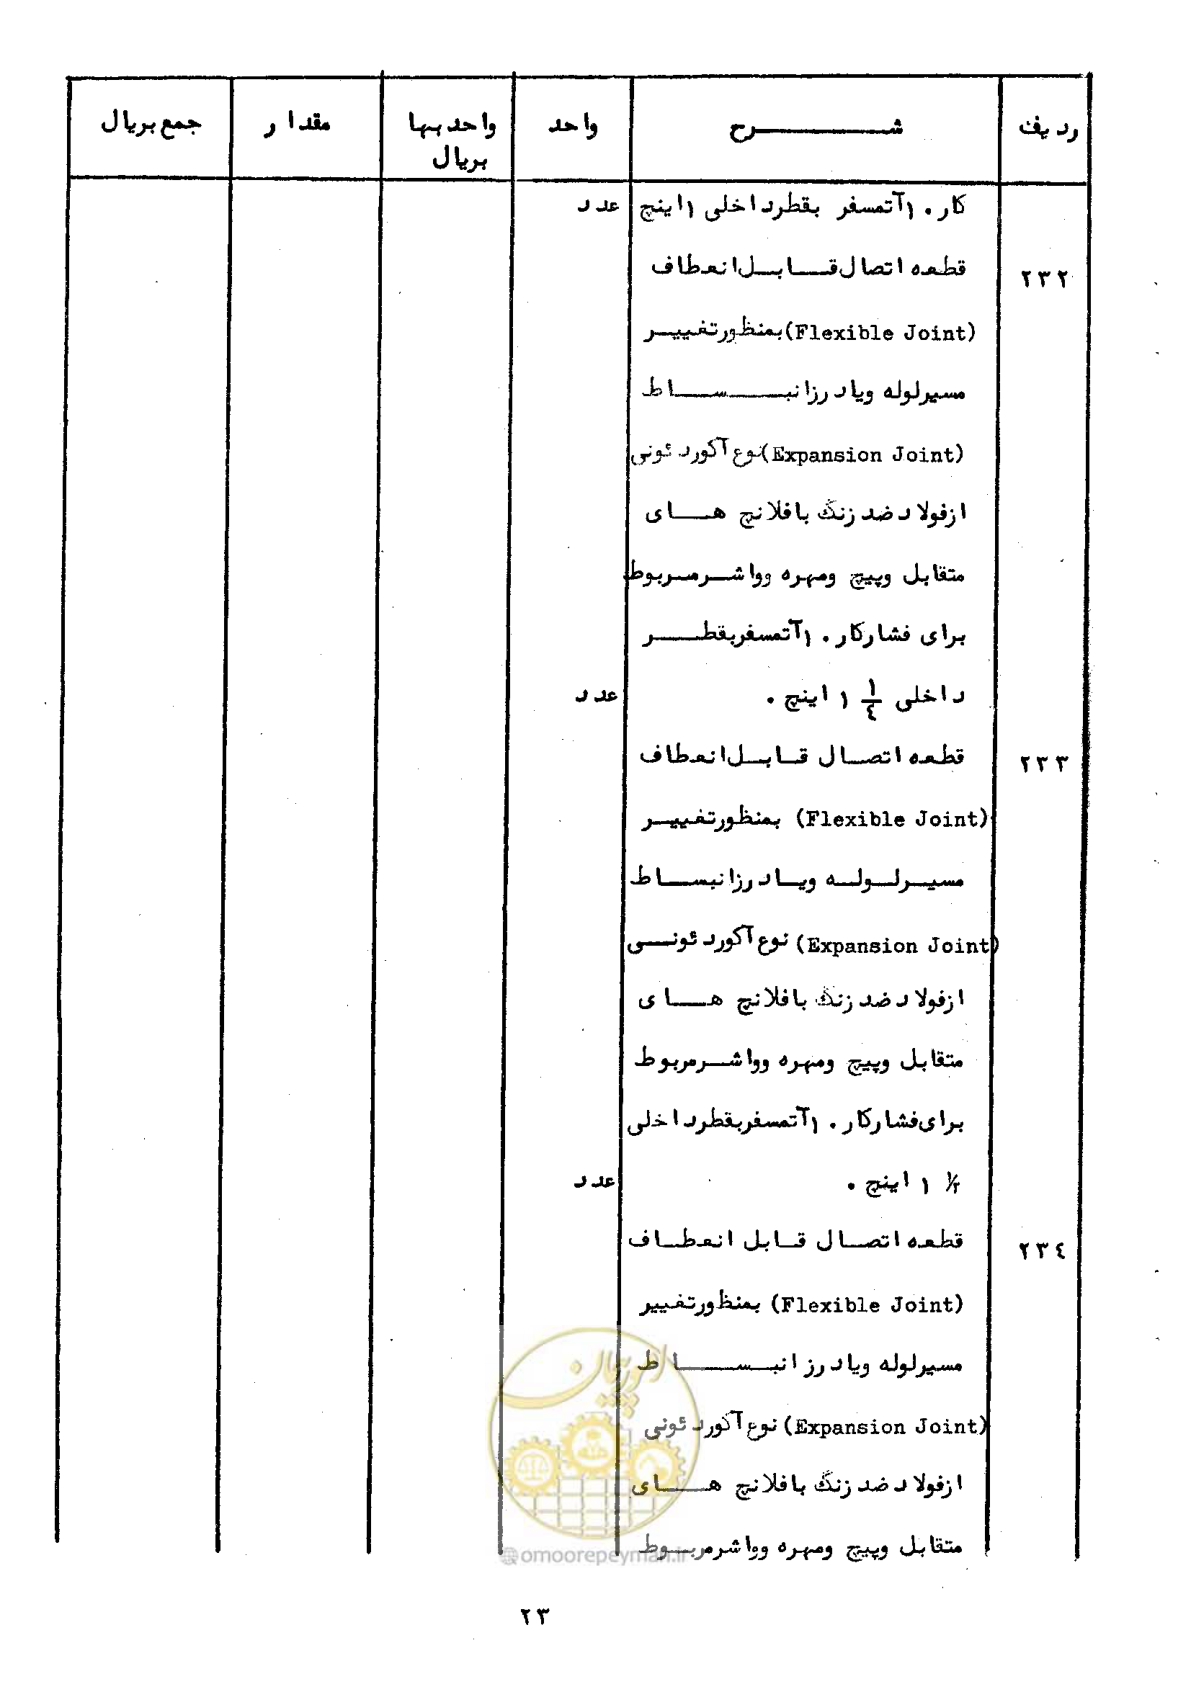 ردیف شرح واحد واحدبها مقدار جمع بریال
بریال
کار ۱۰ آتمسفر بقطرداخلی ۱ اینچ عدد
۲۳۲ قطعه اتصال قابل انعطاف
(Flexible Joint) بمنظورتغییر
مسیرلوله ویادرزانبساط
(Expansion Joint) نوع آکوردئونی
ازفولاد ضد زنگ بافلانچ های
متقابل وپیچ ومهره وواشرمربوط
برای فشارکار ۱۰ آتمسفربقطر
داخلی ۱ ۱/٤ اینچ . عدد
۲۳۳ قطعه اتصال قابل انعطاف
(Flexible Joint) بمنظورتغییر
مسیرلوله ویادرزانبساط
(Expansion Joint) نوع آکوردئونی
ازفولاد ضد زنگ بافلانچ های
متقابل وپیچ ومهره وواشرمربوط
برای فشارکار ۱۰ آتمسفربقطرداخلی
۱ ۱/۲ اینچ . عدد
۲۳٤ قطعه اتصال قابل انعطاف
(Flexible Joint) بمنظورتغییر
مسیرلوله ویادرزانبساط
(Expansion Joint) نوع آکوردئونی
ازفولاد ضد زنگ بافلانچ های
متقابل وپیچ ومهره وواشرمربوط
امور پیمان
@omoorepeyman.ir
۲۳